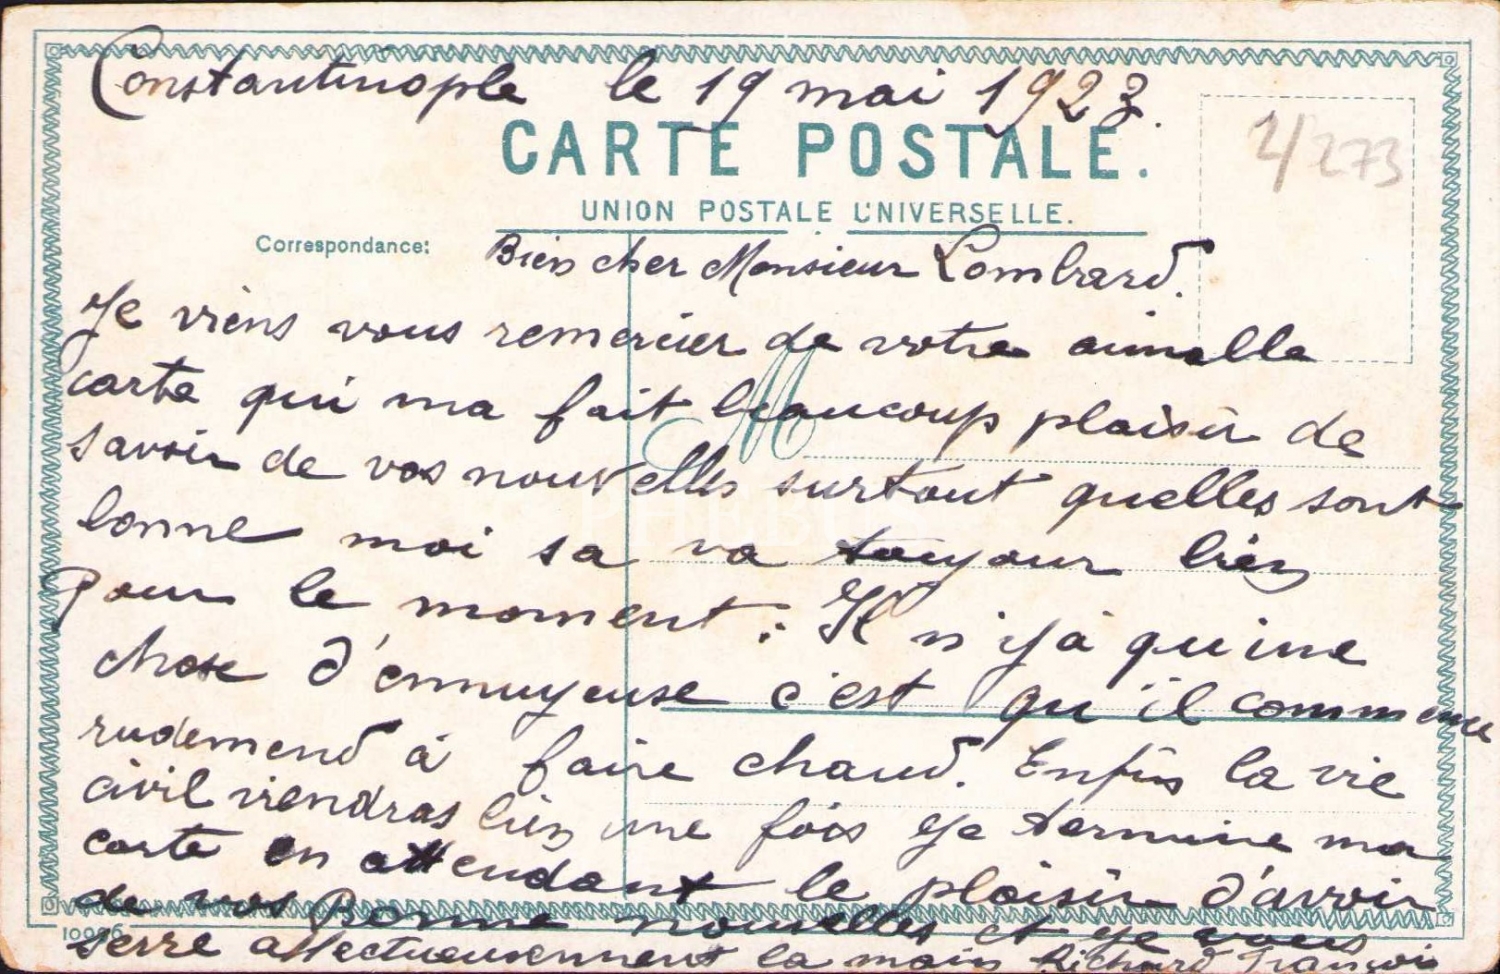 Constantinople le 19 mai 1923.
2/273
CARTE POSTALE.
UNION POSTALE UNIVERSELLE.
Correspondance:
Bien cher Monsieur Lombard.
Je viens vous remercier de votre aimable
carte qui ma fait beaucoup plaisir de
savoir de vos nouvelles surtout quelles sont
bonne moi sa va toujour bien
pour le moment : Il n'y à qu'une
chose d'ennuyeuse c'est qu'il commence
rudemend à faire chaud. Enfin la vie
civil viendras bien une fois Je termine ma
carte en attendant le plaisir d'avoir
de vos Bonne nouvelles et je vous
serre affectueusement la main Richard François
M